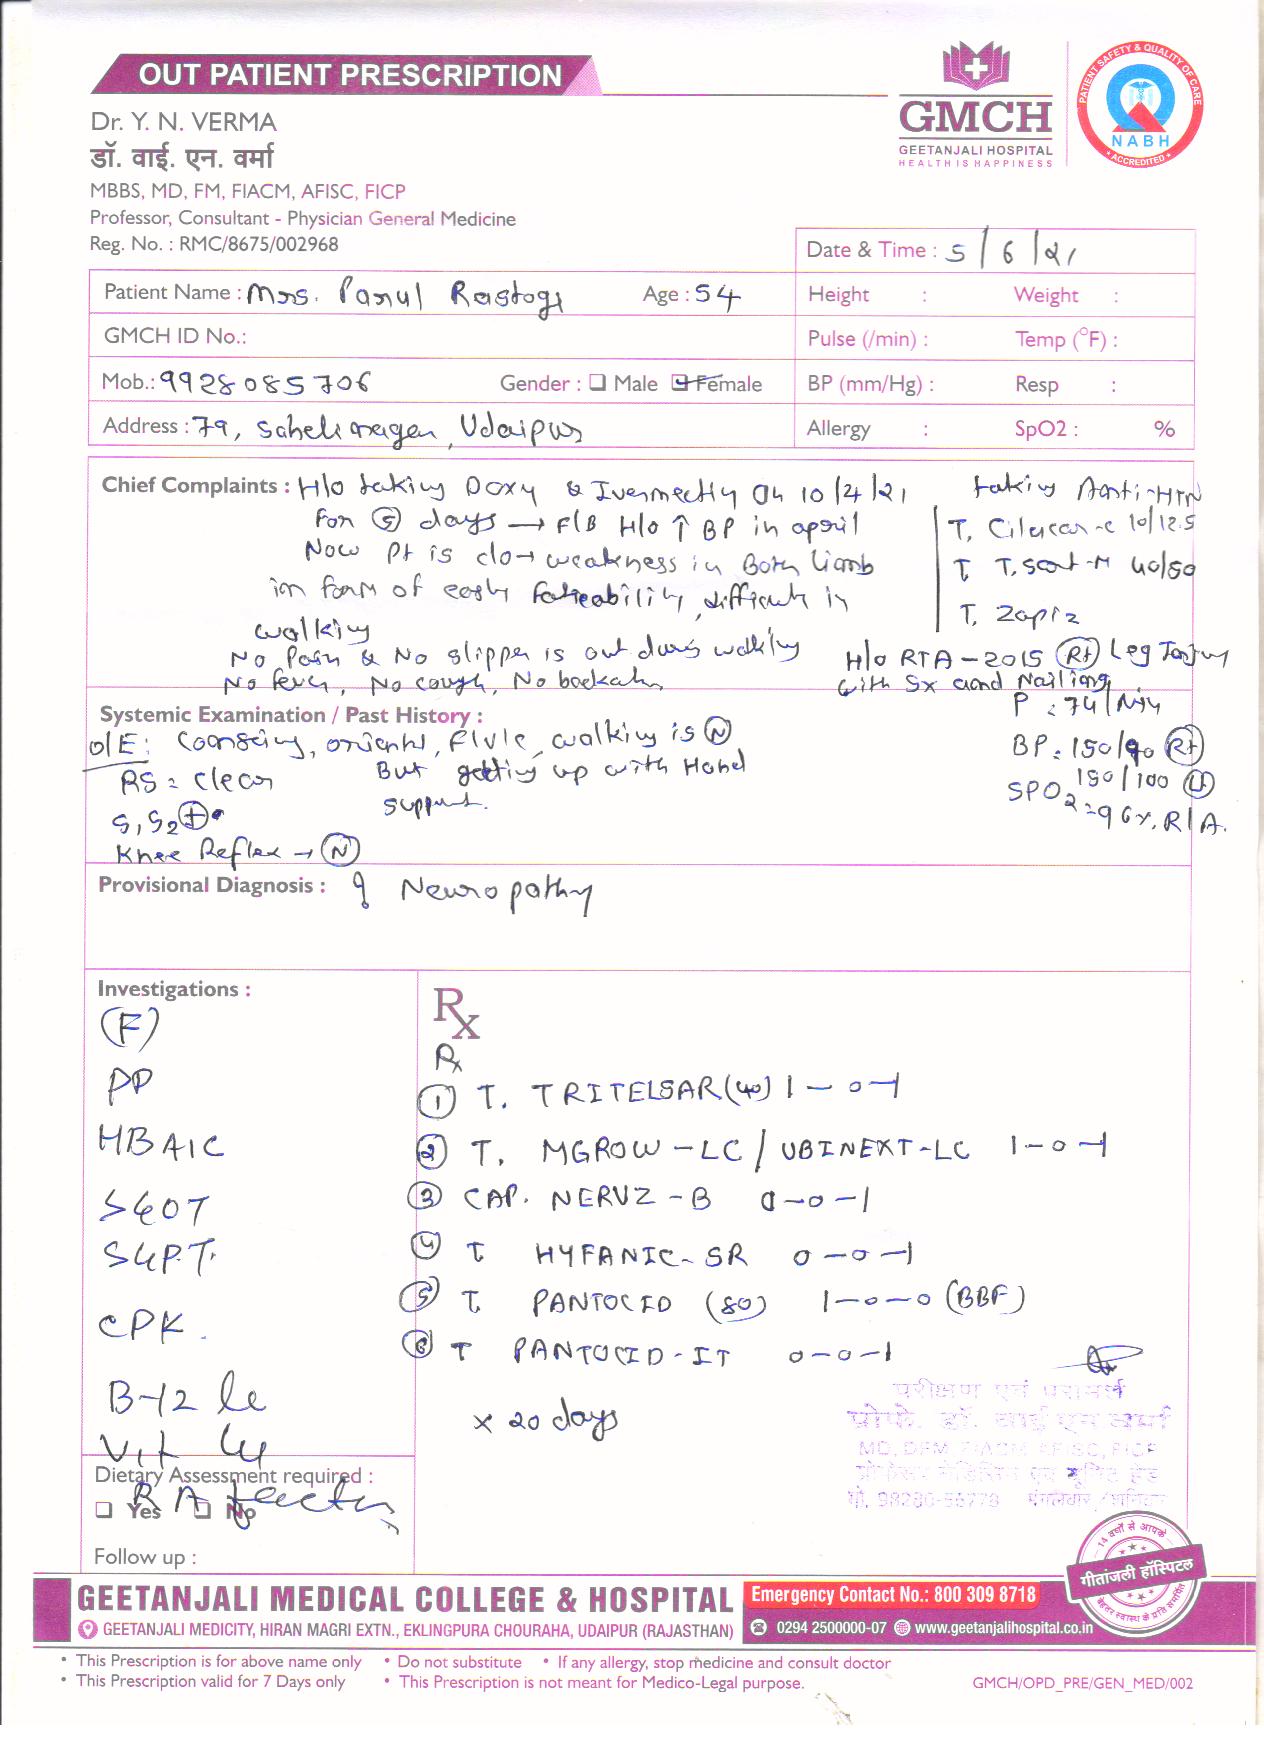 OUT PATIENT PRESCRIPTION
GMCH
GEETANJALI HOSPITAL
HEALTH IS HAPPINESS
PATIENT SAFETY & QUALITY OF CARE
NABH
ACCREDITED
Dr. Y. N. VERMA
डॉ. वाई. एन. वर्मा
MBBS, MD, FM, FIACM, AFISC, FICP
Professor, Consultant - Physician General Medicine
Reg. No. : RMC/8675/002968
Date & Time : 5/6/21
Patient Name : Mrs. Parul Rastogi Age : 54
Height : Weight :
GMCH ID No.:
Pulse (/min) : Temp (°F) :
Mob.: 9928085706 Gender : Male Female
BP (mm/Hg) : Resp :
Address : 79, Saheli nagar, Udaipur
Allergy : SpO2 : %
Chief Complaints : H/o taking Doxy & Ivermectin on 10/4/21
for 5 days → F/B H/o ↑ BP in april
Now Pt is c/o → weakness in Both limb
in form of easy fatigability, difficulty in
walking
No Pain & No slipper is out during walking
No fever, No cough, No
taking Anti-HTN
T. Cilacar-C 10/12.5
T. T.sart-M 40/50
T. Zapiz
H/o RTA - 2015 (Rt) Leg Injury
with Sx and Nailing
Systemic Examination / Past History :
O/E: Conscious, orient, walking is (N)
But getting up with Hand
support.
RS = clear
S1S2 (+)
Knee Reflex → (N)
P : 74/min
BP: 150/90 (Rt)
150/100 (Lt)
SPO2 = 96% R/A.
Provisional Diagnosis : ? Neuropathy
Investigations :
(F)
PP
HBA1C
SGOT
SGPT.
CPK.
B-12
Vit
RA factor
Rx
Rx
① T. TRITELSAR (40) 1-0-1
② T. MGROW-LC / UBINEXT-LC 1-0-1
③ CAP. NERVZ-B 0-0-1
④ T HYFANIC-SR 0-0-1
⑤ T. PANTOCID (80) 1-0-0 (BBF)
⑥ T PANTOCID-IT 0-0-1
x 20 days
परीक्षण एवं परामर्श
प्रोफे. डॉ. वाई एन वर्मा
Dietary Assessment required :
Yes No
Follow up :
14 वर्षों से आपके
गीतांजली हॉस्पिटल
बेहतर स्वास्थ्य के प्रति समर्पित
GEETANJALI MEDICAL COLLEGE & HOSPITAL
Emergency Contact No.: 800 309 8718
GEETANJALI MEDICITY, HIRAN MAGRI EXTN., EKLINGPURA CHOURAHA, UDAIPUR (RAJASTHAN)
0294 2500000-07 www.geetanjalihospital.co.in
• This Prescription is for above name only • Do not substitute • If any allergy, stop medicine and consult doctor
• This Prescription valid for 7 Days only • This Prescription is not meant for Medico-Legal purpose.
GMCH/OPD_PRE/GEN_MED/002